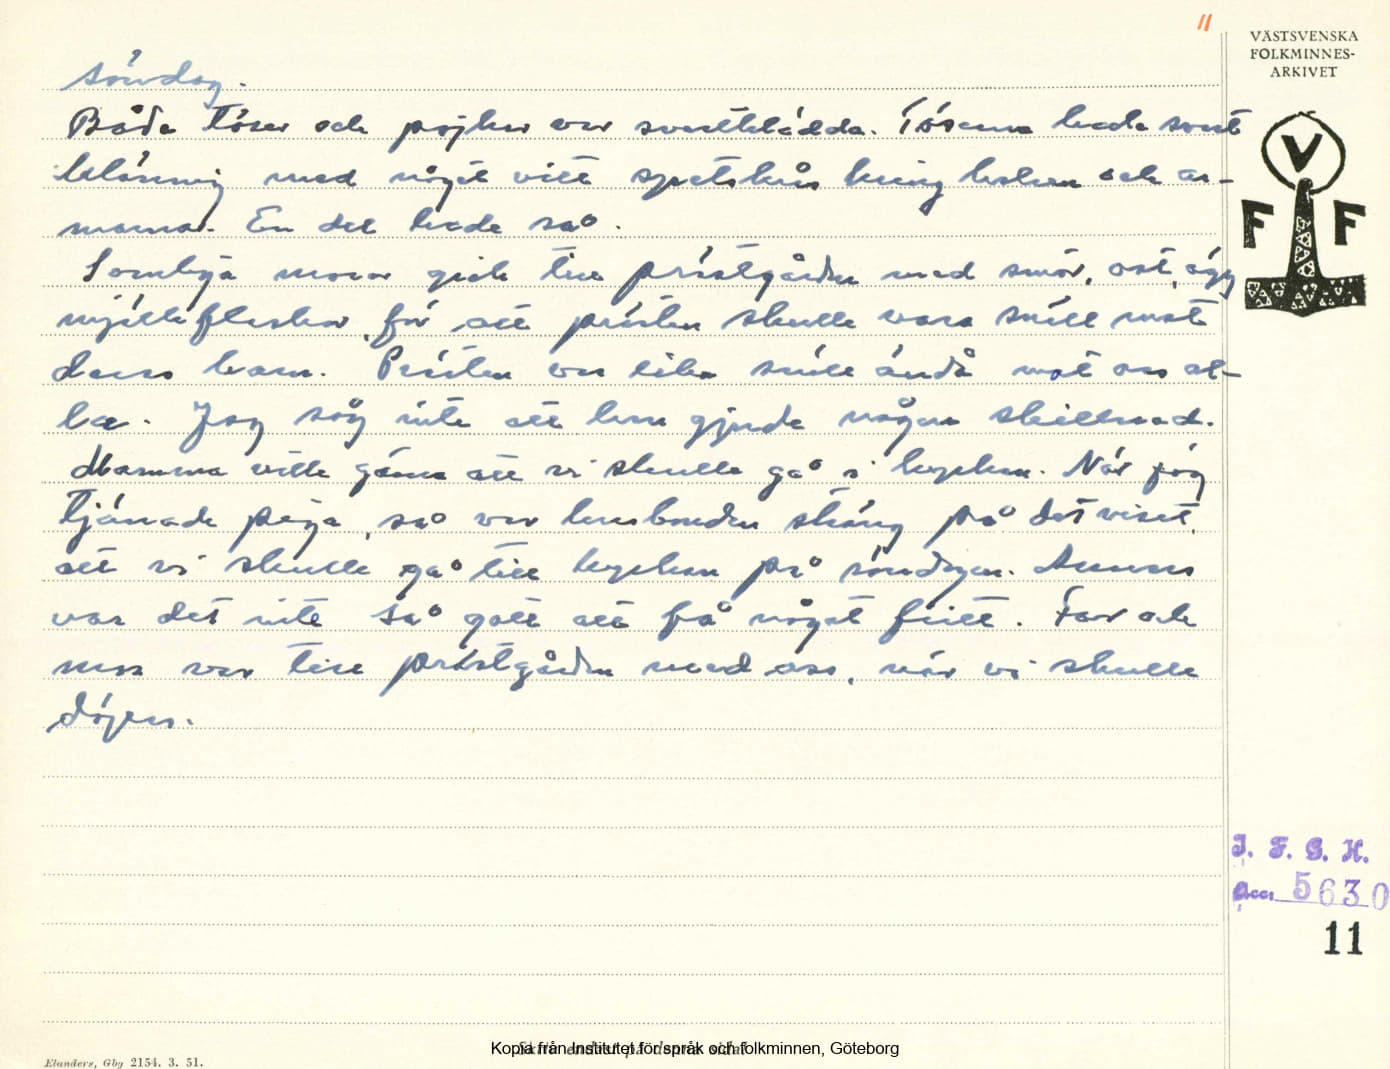 11
VÄSTSVENSKA
FOLKMINNES-
ARKIVET
V
F F
söndag.
Både töser och pojkar var svartklädda. Töserna hade svart
klänning med något vitt spetskrås kring halsen och ar-
marna. En del hade så.
Somliga morar gick till prästgården med smör, ost, ägg
mjölkflaskor, för att prästen skulle vara snäll mot
deras barn. Prästen var lika snäll ändå mot oss al-
la. Jag såg inte att han gjorde någon skillnad.
Mamma ville gärna att vi skulle gå i kyrkan. När jag
tjänade piga, så var husbonden sträng på det viset,
att vi skulle gå till kyrkan på söndagen. Annars
var det inte så gott att få något fritt. Far och
mor var till prästgården med oss, när vi skulle
döpas.
I. F. G. H.
Acc. 5630
11
Elanders, Gbg 2154. 3. 51.
Kopia från Institutet för språk och folkminnen, Göteborg